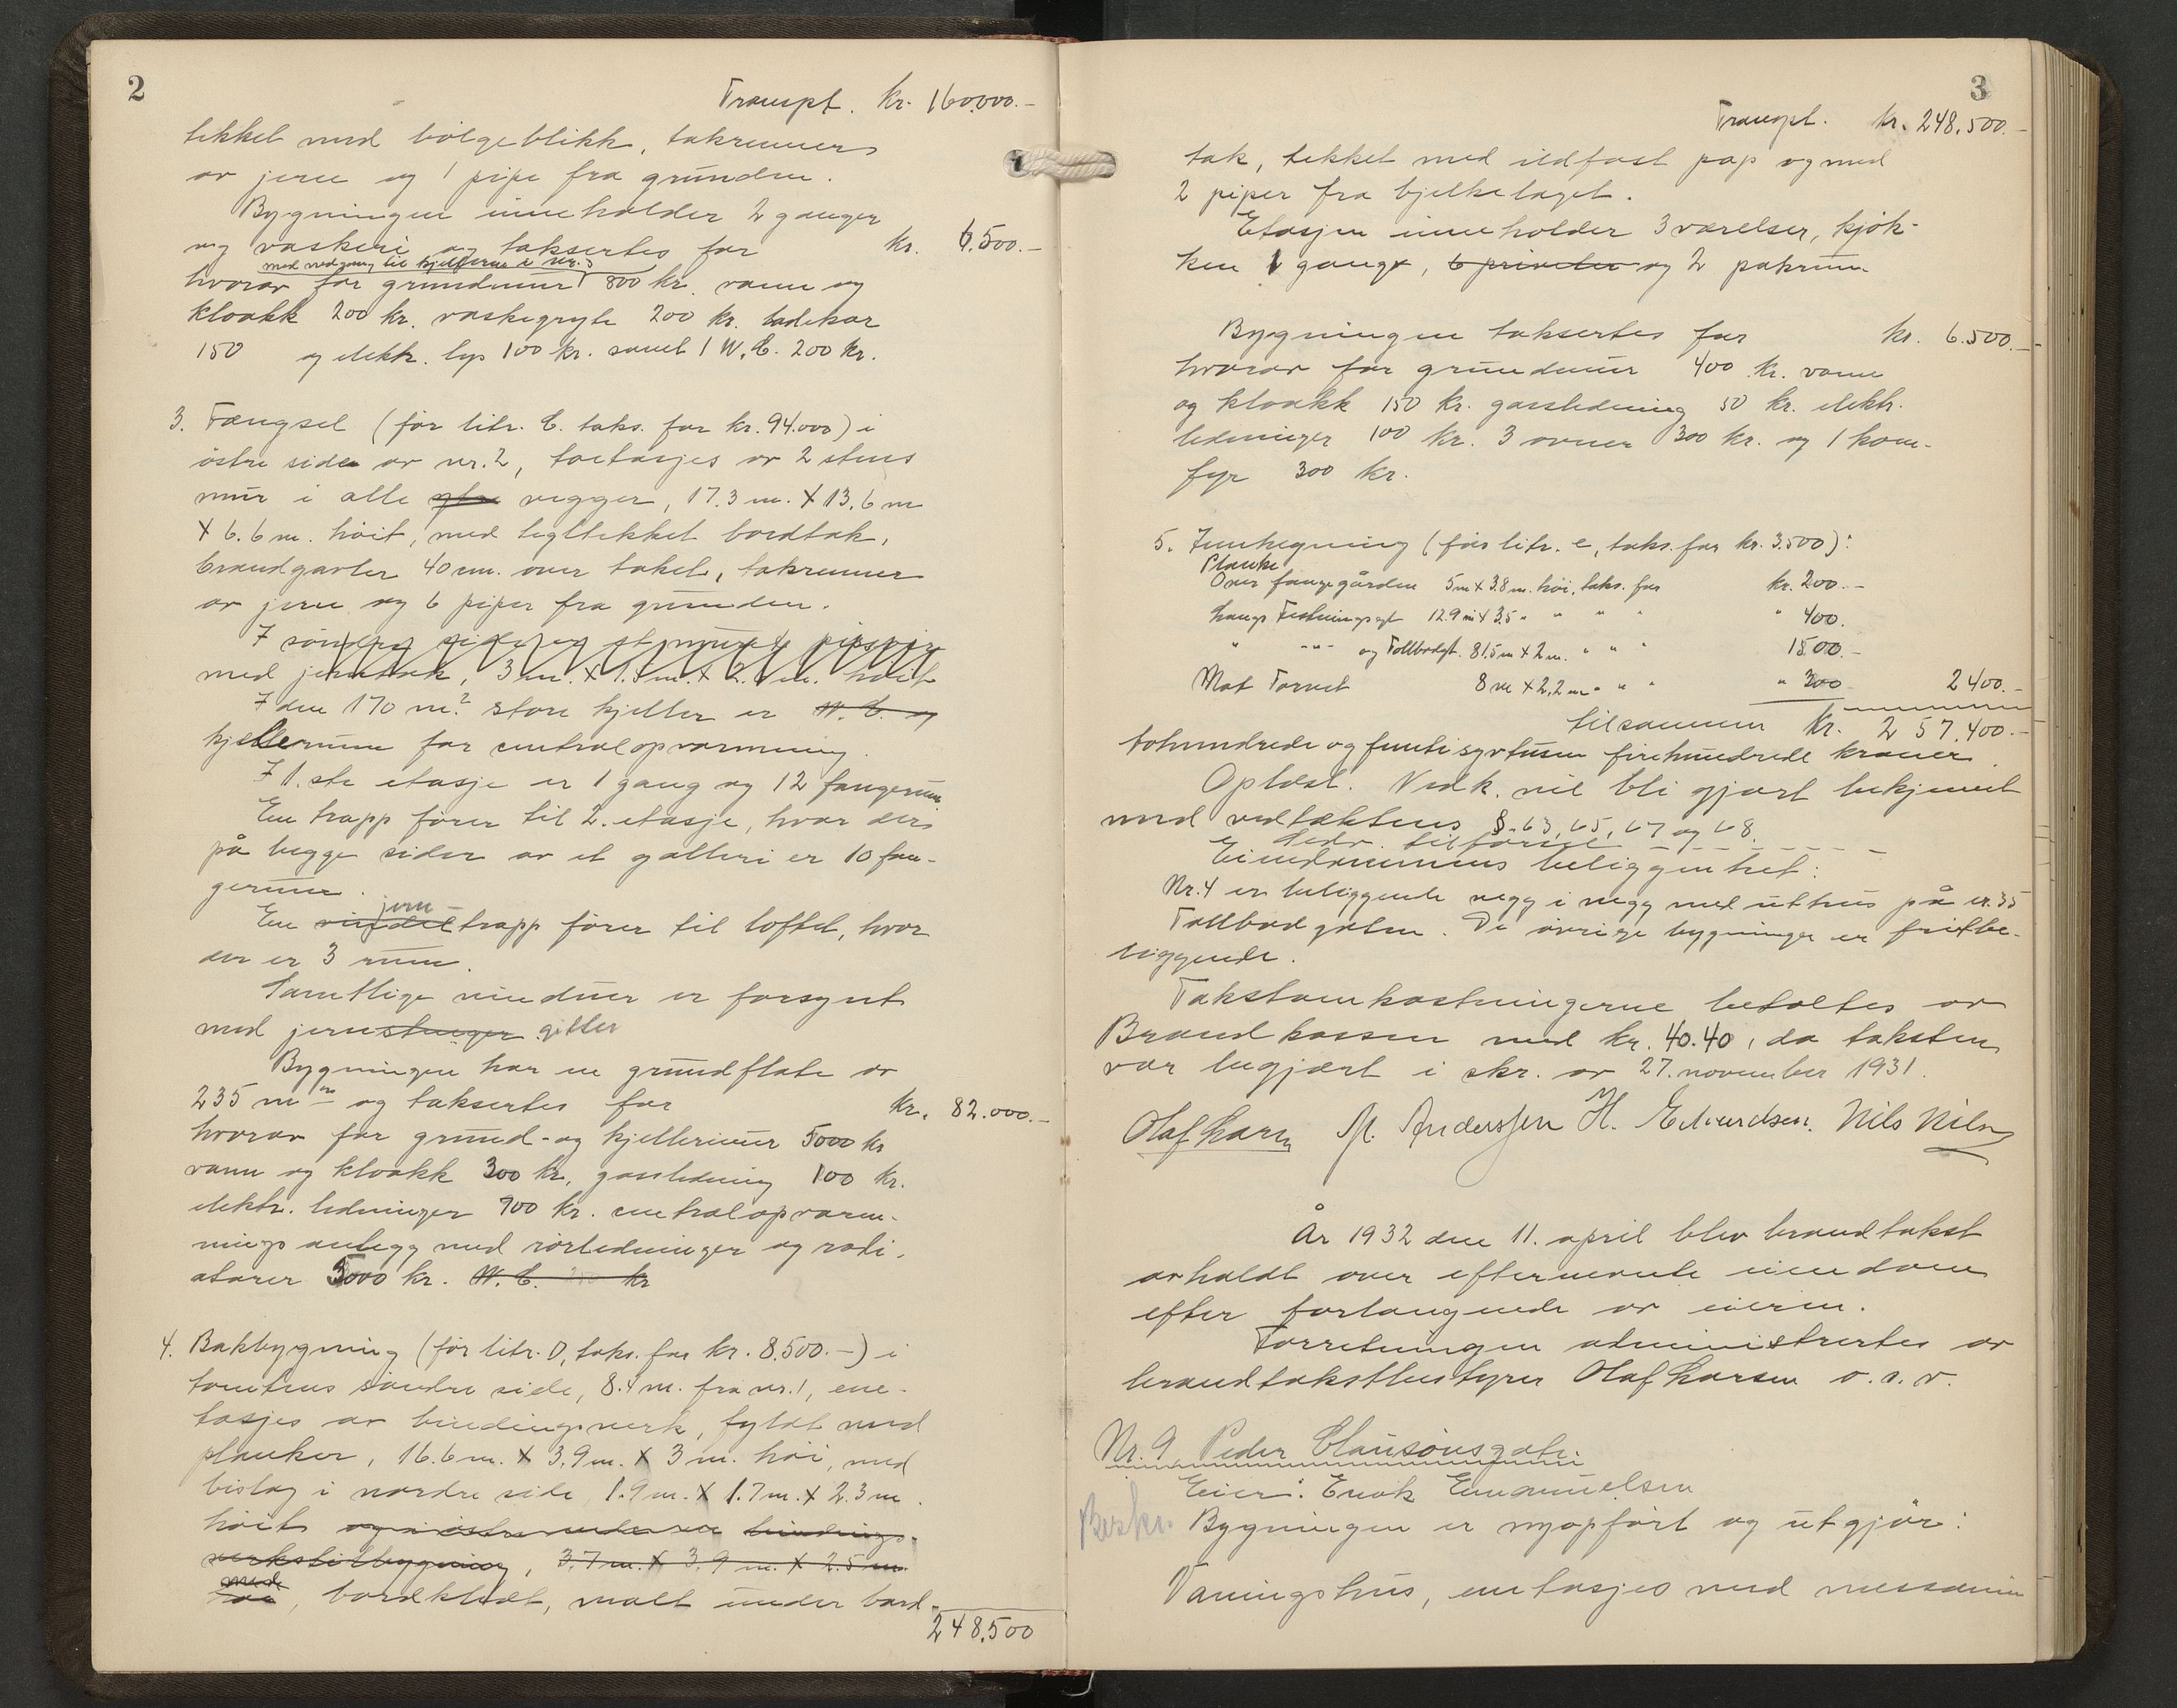 2
Transpt. kr. 160.000.-
tekket med bølgeblikk, takrenner
av jern og 1 pipe fra grunden.
Bygningen inneholder 2 ganger
og vaskeri og taksertes for kr. 6.500.-
med nedgang til kjelleren i nr. 3
hvorav for grundmur 800 kr. vann og
kloakk 200 kr. vaskegryte 200 kr. badekar
150 og elektr. lys 100 kr. samt 1 W.C. 200 kr.
3. Fængsel (før litr. C. taks. for kr. 94.000) i
østre side av nr. 2, toetasjes av 2 stens
mur i alle ytre vegger, 17.3 m. X 13.6 m
X 6.6 m. høit, med tegltekket bordtak,
brandgavler 40 cm. over taket, takrenner
av jern og 6 piper fra grunden.
I søndre side
med jerntak, 3 m. X
I den 170 m.² store kjeller er W.C. og
kjellerrum for centralopvarmning.
I 1.ste etasje er 1 gang og 12 fangerum
En trapp fører til 2. etasje, hvor der
på begge sider av et galleri er 10 fan-
gerum.
jern-
En vindel trapp fører til loftet, hvor
der er 3 rum.
Samtlige vinduer er forsynt
med jernstenger gitter
Bygningen har en grundflate av
235 m² og taksertes for kr. 82.000.-
hvorav for grund- og kjellermur 5000 kr
vann og kloakk 300 kr, gassledning 100 kr.
elektr. ledninger 700 kr. centralopvarm-
nings anlegg med rørledninger og radi-
atorer 5000 kr. W.C. kr
4. Bakbygning (før litr. D, taks. for kr. 8.500.-) i
tomtens søndre side, 8.4 m. fra nr. 1, ene-
tasjes av bindingsverk, fyldt med
planker, 16.6 m. X 3.9 m. X 3 m. høi, med
bislag i nordre side 1.9 m. X 1.7 m. X 2.3 m.
høit og i østre ende en bindings-
verkstilbygning, 3.7 m. X 3.9 m. X 2.5 m.
med
høi, bordklædt, malt under bord-
248.500
3
Transpt. kr. 248.500.-
tak, tekket med ildfast pap og med
2 piper fra bjelkelaget.
Etasjen inneholder 3 værelser, kjøk-
ken 1 gang, 6 priveter og 2 pakrum
Bygningen taksertes for kr. 6.500.-
hvorav for grundmur 400 kr. vann
og kloakk 150 kr. gassledning 50 kr. elektr.
ledninger 100 kr. 3 ovner 300 kr. og 1 kom-
fyr 300 kr.
5. Innhegning (før litr. e, taks. for kr. 3.500):
Planke
Over fangegården 5 m X 3.8 m. høi, taks. for kr. 200.-
Langs Festningsgt 12.9 m X 3.5 " " " " " 400.
" -"- og Tollbodgt. 81.5 m X 2 m. " " " 1500.-
Mot Torvet 8 m X 2,2 m " " " " 300 2400.-
tilsammen kr. 257.400.-
tohundrede og femtisyvtusen firehundrede kroner.
Oplæst. Vedk. vil bli gjort bekjendt
med vedtektens §. 63, 65, 67 og 68.
Vedr. tilførsel
Eiendommens beliggenhet:
Nr. 4 er beliggende vegg i vegg med uthus på nr. 35
Tollbodgaten. De øvrige bygninger er fritbe-
liggende.
Takstomkostningerne betaltes av
Brandkassen med kr. 40.40, da taksten
var begjært i skr. av 27. november 1931.
Olaf Larsen M. Anderssen H. Edvardsen. Nils Nilsen
År 1932 den 11. april blev brandtakst
avholdt over efternevnte eiendom
efter forlangende av eieren.
Forretningen administrertes av
brandtakstbestyrer Olaf Larsen o.s.v.
Nr. 9 Peder Claussønsgate.
Eier: Enok Emanuelsen
Beskr. Bygningen er nyopført og utgjør:
Vaningshus, enetasjes med messanin